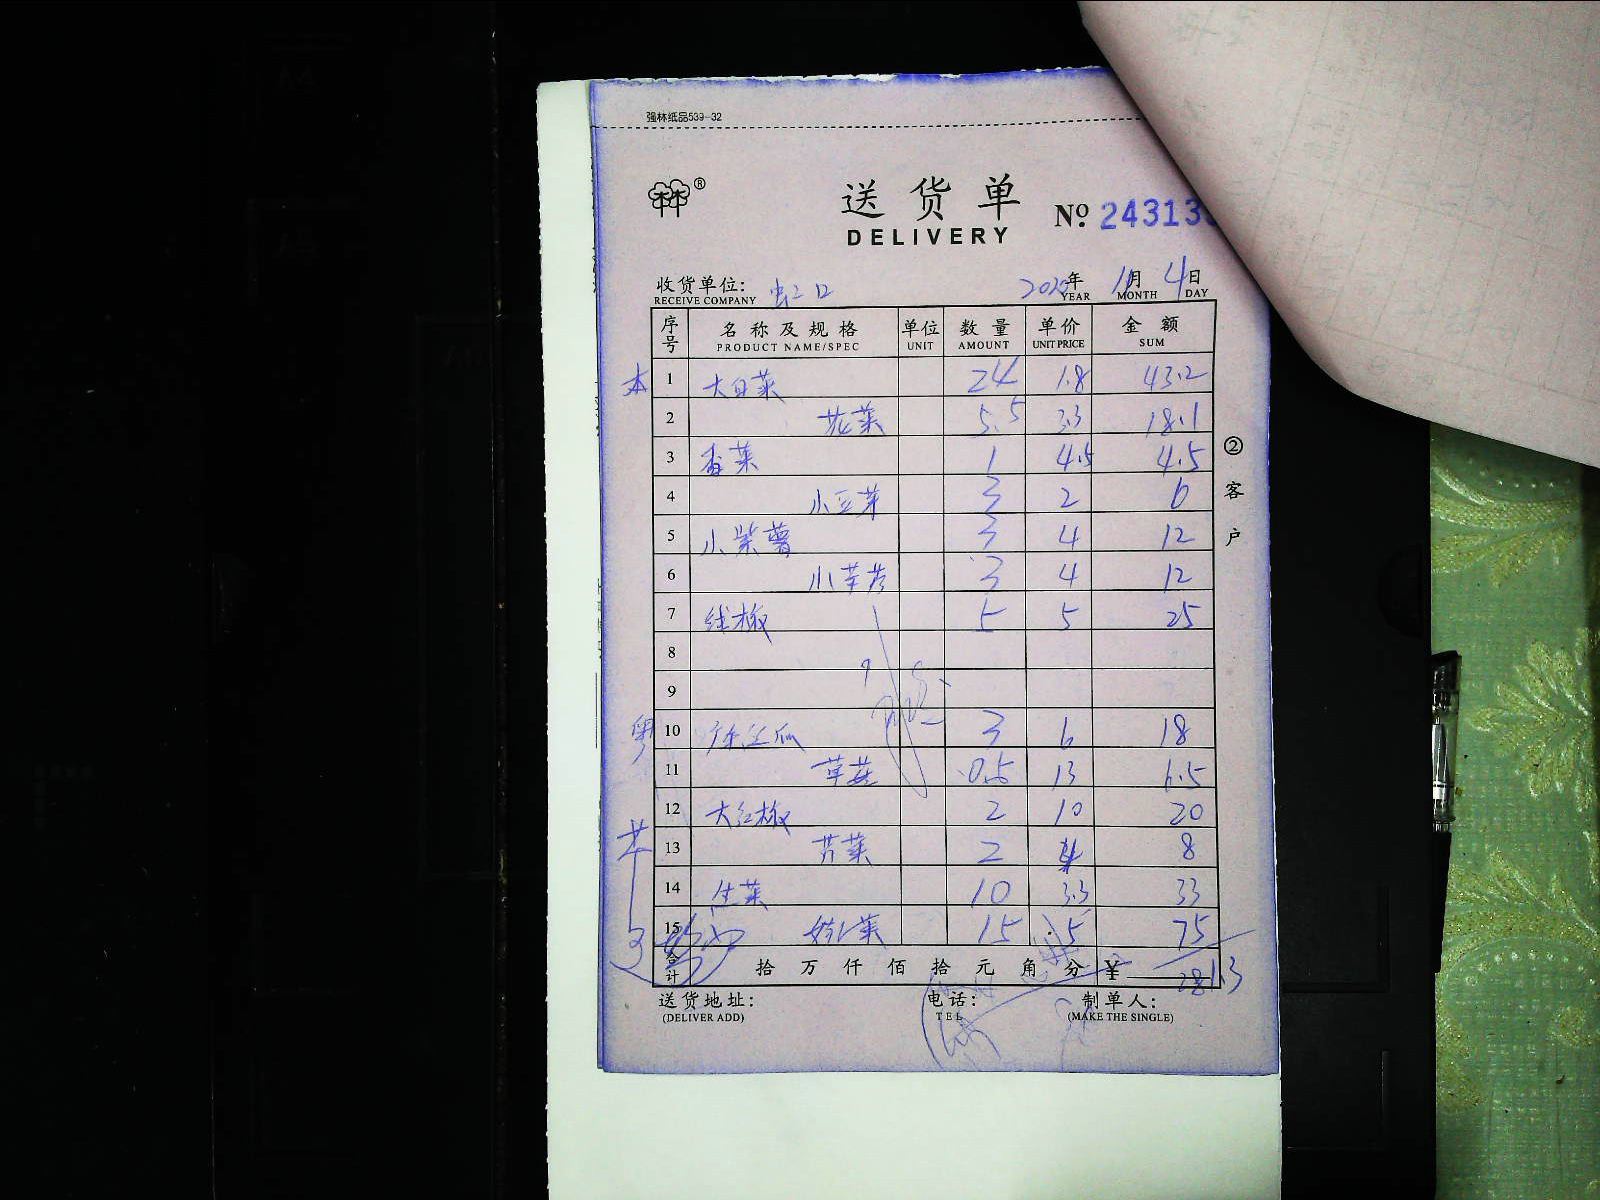 强林纸品539-32
林林®
送货单
DELIVERY
№ 24313
收货单位: 虹口 2020年 11月 4日
RECEIVE COMPANY YEAR MONTH DAY
序号 名称及规格 单位 数量 单价 金额
PRODUCT NAME/SPEC UNIT AMOUNT UNIT PRICE SUM
本 1 大白菜 24 1.8 43.2
2 花菜 5.5 3.3 18.1
3 香菜 1 4.5 4.5
4 小豆芽 3 2 6
5 小紫薯 3 4 12
6 小芋艿 3 4 12
7 线椒 5 5 25
8
9
粤 10 丝瓜 3 6 18
11 草菇 0.5 13 6.5
12 大红椒 2 10 20
13 芹菜 2 4 8
14 生菜 10 3.3 33
15 娃菜 15 5 75
合计 拾万仟佰拾元角分 ¥ 281.3
送货地址: 电话: 制单人:
(DELIVER ADD) TEL (MAKE THE SINGLE)
②客户